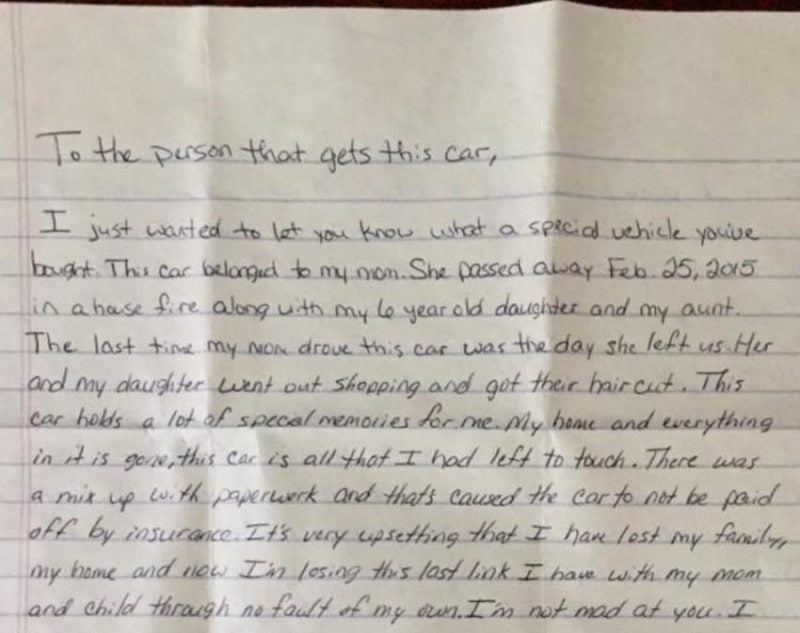 To the person that gets this car,
I just wanted to let you know what a special vehicle you've
bought. This car belonged to my mom. She passed away Feb. 25, 2015
in a house fire along with my 6 year old daughter and my aunt.
The last time my mom drove this car was the day she left us. Her
and my daughter went out shopping and got their hair cut. This
car holds a lot of special memories for me. My home and everything
in it is gone, this car is all that I had left to touch. There was
a mix up with paperwork and thats caused the car to not be paid
off by insurance. It's very upsetting that I have lost my family,
my home and now I'm losing this last link I have with my mom
and child through no fault of my own. I'm not mad at you. I